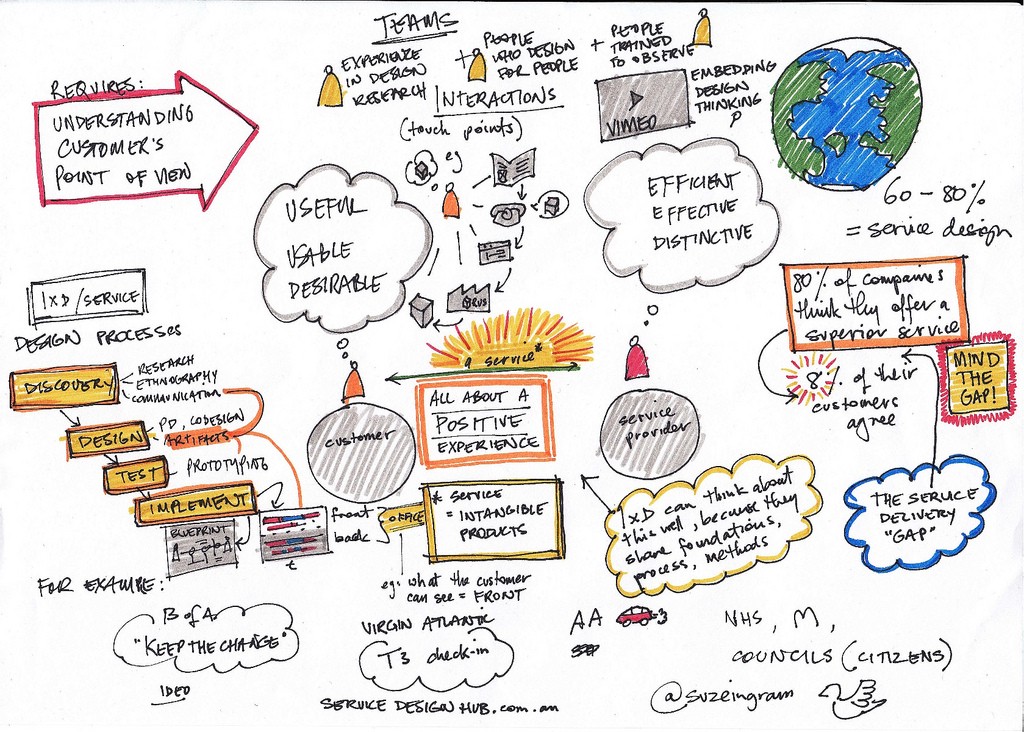 TEAMS
EXPERIENCE
IN DESIGN
RESEARCH
+ PEOPLE
WHO DESIGN
FOR PEOPLE
+ PEOPLE
TRAINED
TO OBSERVE
REQUIRES:
UNDERSTANDING
CUSTOMER'S
POINT OF VIEW
INTERACTIONS
(touch points)
eg
VIMEO
EMBEDDING
DESIGN
THINKING
USEFUL
USABLE
DESIRABLE
EFFICIENT
EFFECTIVE
DISTINCTIVE
60 - 80%
= service design
IXD/SERVICE
DESIGN PROCESSES
DISCOVERY
RESEARCH
ETHNOGRAPHY
COMMUNICATION
DESIGN
PD, CODESIGN
ARTIFACTS
TEST
PROTOTYPING
IMPLEMENT
BLUEPRINT
t
front
back
OFFICE
a service*
ALL ABOUT A
POSITIVE
EXPERIENCE
customer
service
provider
* SERVICE
= INTANGIBLE
PRODUCTS
eg: what the customer
can see = FRONT
80% of companies
think they offer a
superior service
8% of their
customers
agree
MIND
THE
GAP!
THE SERVICE
DELIVERY
"GAP"
IXD can think about
this well, because they
share foundations,
process, methods
FOR EXAMPLE:
B of A
"KEEP THE CHANGE"
IDEO
VIRGIN ATLANTIC
T3 check-in
AA
NHS, M,
COUNCILS (CITIZENS)
SERVICE DESIGN HUB.com.au
@suzeingram